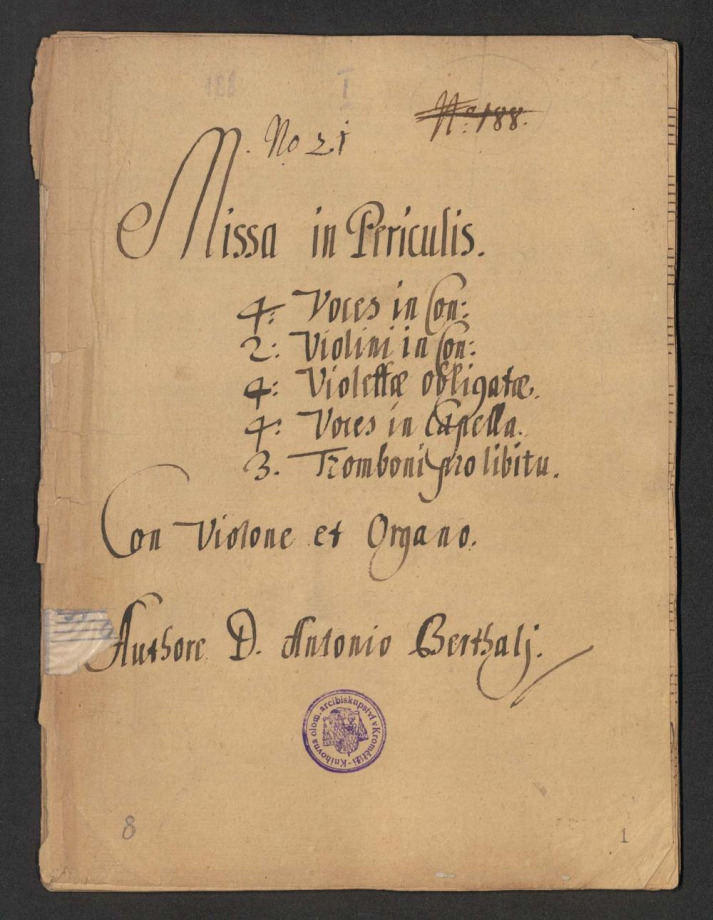 No 21
N: 188.
Missa in Periculis.
4: Voces in Con:
2: Violini in Con:
4: Violettæ obligatæ.
4: Voces in Capella.
3. Tromboni pro libitu.
Con Violone et Organo.
Authore D. Antonio Berthalj.
Knihovna olom. arcibiskupství v Kroměříži
8
1